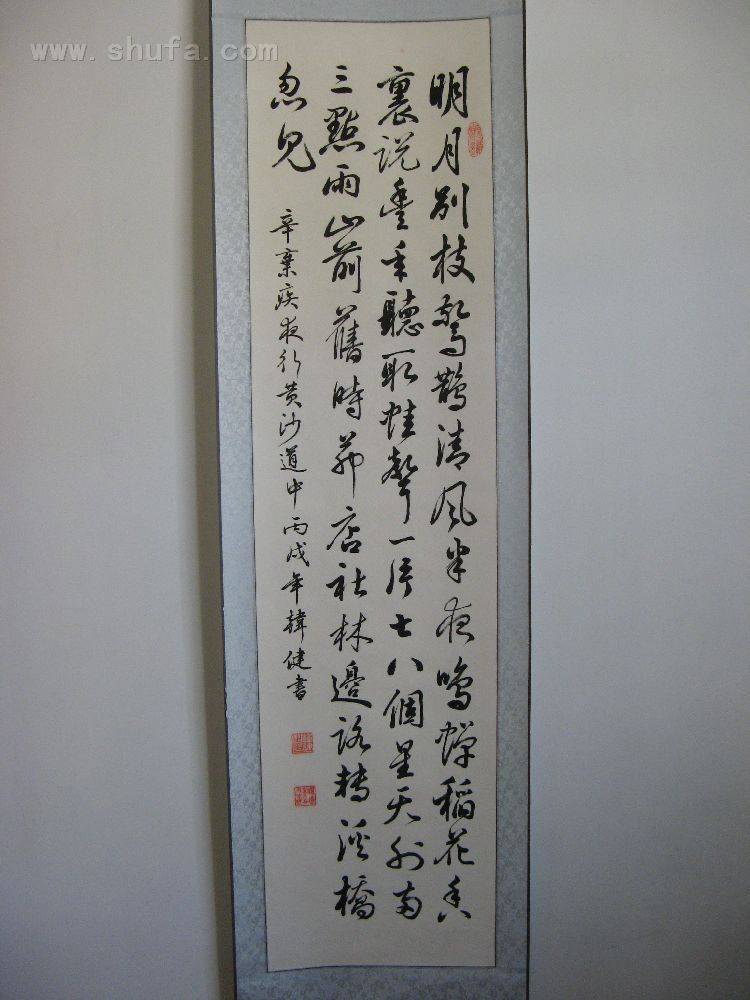 www.shufa.com
明月別枝驚鵲清風半夜鳴蟬稻花香
裏説豐年聽取蛙聲一片七八個星天外兩
三點雨山前舊時茆店社林邊路轉溪橋
忽見
辛棄疾夜行黃沙道中丙戌年韓健書